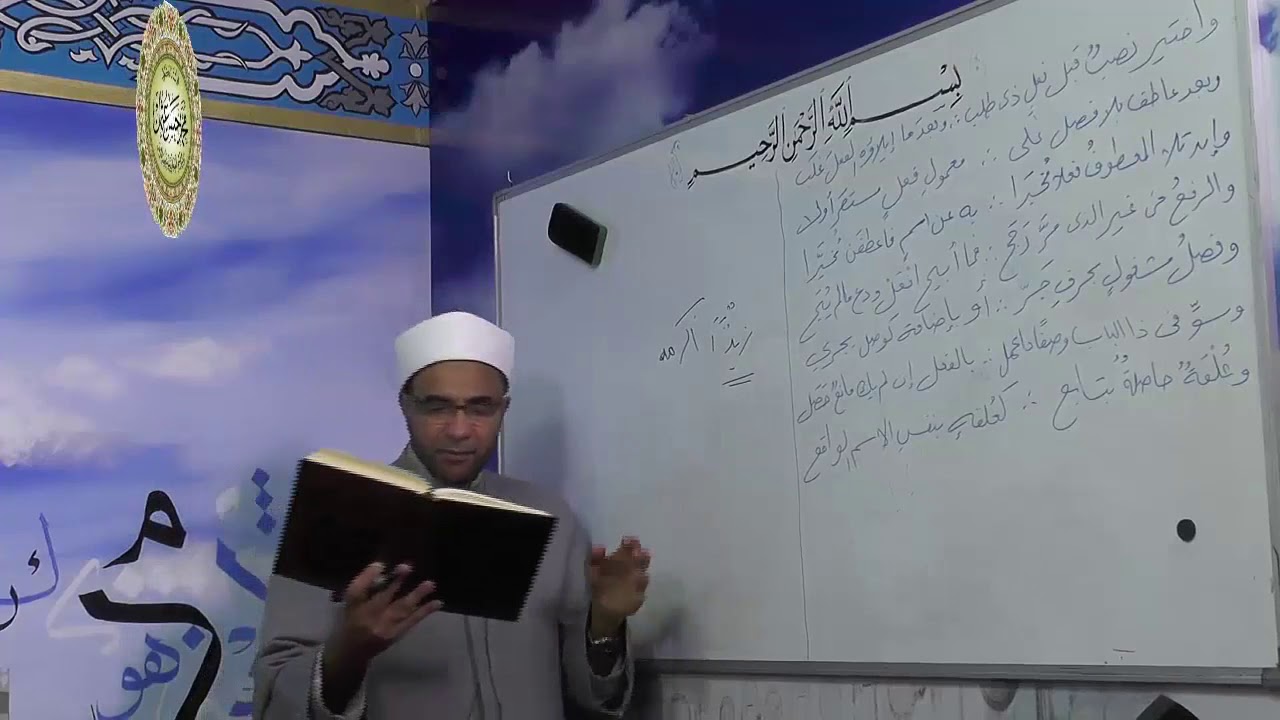 بِسْمِ اللَّهِ الرَّحْمَنِ الرَّحِيمِ
واختير نصبٌ قبل فعلٍ ذى طلب ∴ وبعد ما إيلاؤه الفعلَ غلب
وبعد عاطفٍ بلا فصلٍ على ∴ معمولِ فعلٍ مستقرٍ أولا
وإن تلا المعطوفُ فعلا مُخبَرا ∴ به عن اسمٍ فاعطفن مُخيَّرا
والرفعُ فى غير الذى مرَّ رَجَح ∴ فما أبيح افعل ودع مالم يُبَح
وفصلُ مشغولٍ بحرفِ جَرِّ ∴ أو بإضافة كوصل يجري
وسوِّ فى ذا الباب وصفًا ذا عمل ∴ بالفعل إن لم يك مانعٌ حصل
وعُلْقةٌ حاصلةٌ بتابعِ ∴ كعُلقةٍ بنفسِ الاسمِ الواقعِ
زيدًا أكرمه